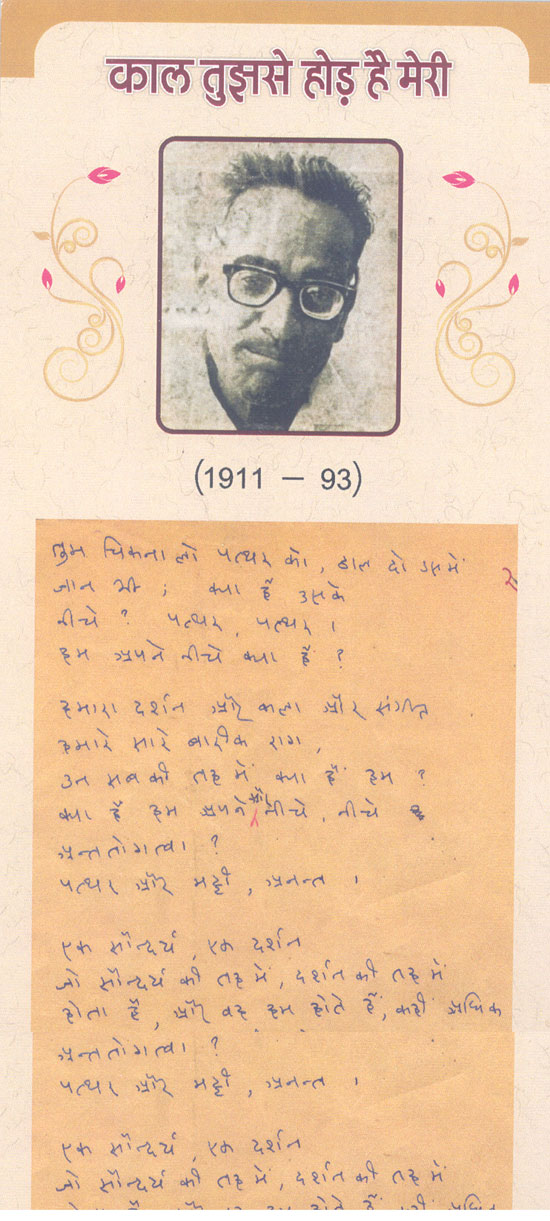 काल तुझसे होड़ है मेरी
(1911 – 93)
तुम चिकना लो पत्थर को, डाल दो उसमें
जान भी ; क्या है उसके
नीचे ? पत्थर, पत्थर ।
हम अपने नीचे क्या हैं ?
हमारा दर्शन और कला और संगीत
हमारे सारे बारीक राग,
उन सबकी तह में क्या हैं हम ?
क्या हैं हम अपने और नीचे, नीचे
अन्ततोगत्वा ?
पत्थर और मट्टी, अनन्त ।
एक सौन्दर्य, एक दर्शन
जो सौन्दर्य की तह में, दर्शन की तह में
होता है, और वह हम होते हैं, कहीं अधिक
अन्ततोगत्वा ?
पत्थर और मट्टी, अनन्त ।
एक सौन्दर्य, एक दर्शन
जो सौन्दर्य की तह में, दर्शन की तह में